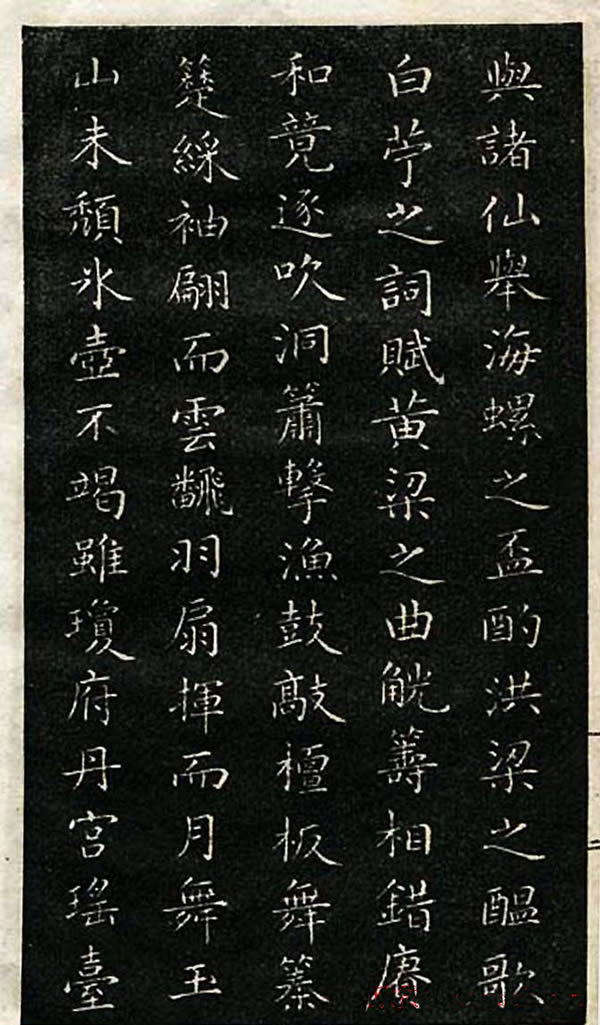 與諸仙舉海螺之盃酌洪梁之醞歌
白苧之詞賦黃粱之曲觥籌相錯賡
和竟逐吹洞簫擊漁鼓敲檀板舞
綵袖翩而雲飜羽扇揮而月舞玉
山未頽氷壺不竭雖瓊府丹宮瑤臺